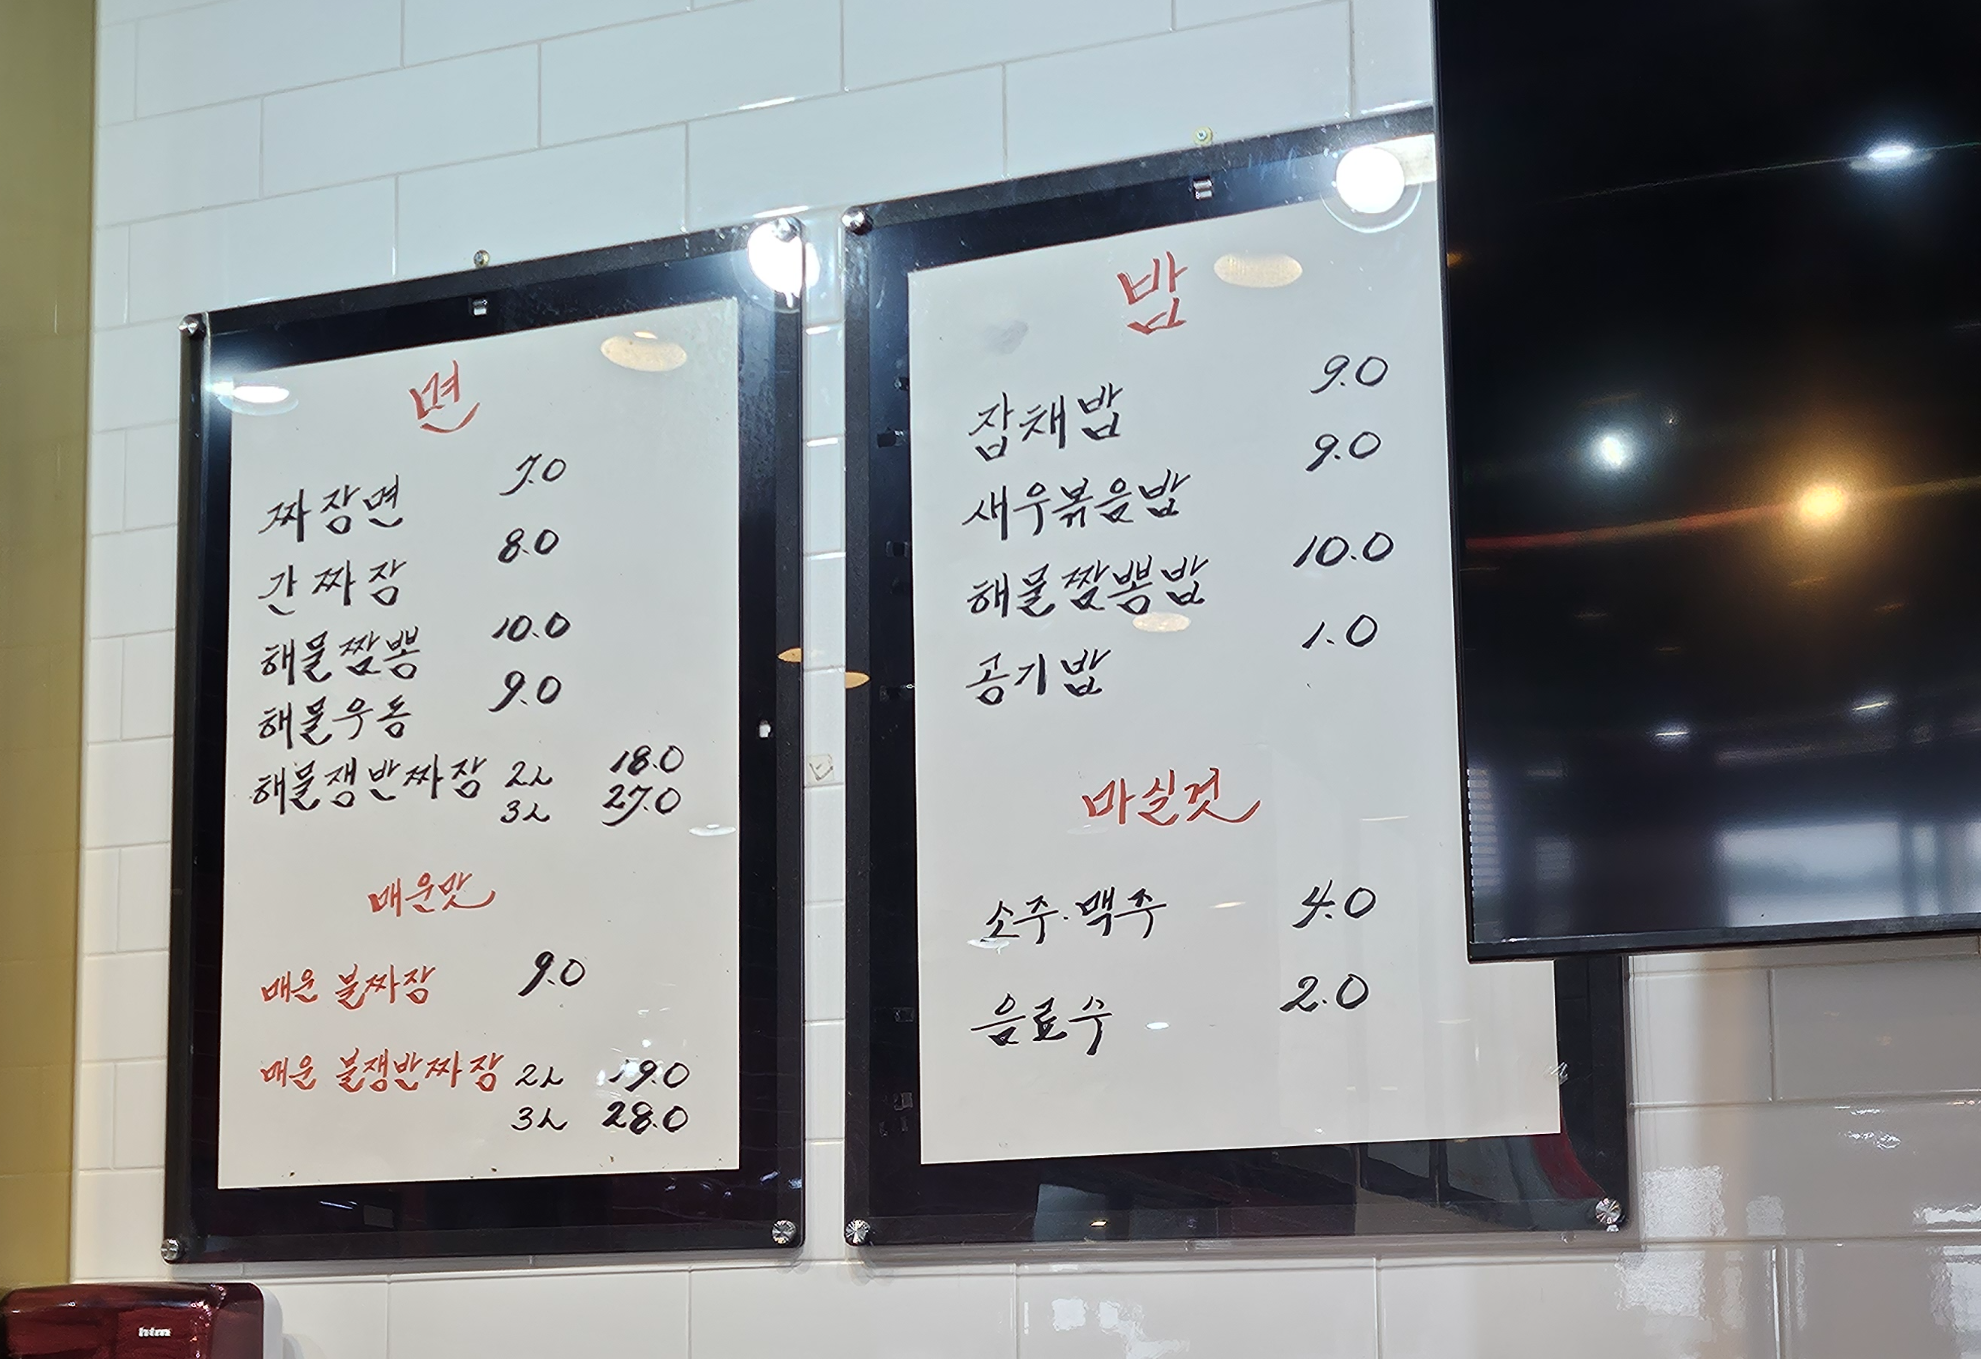 면
짜장면 7.0
간짜장 8.0
해물짬뽕 10.0
해물우동 9.0
해물쟁반짜장 2人 18.0
3人 27.0
매운맛
매운 불짜장 9.0
매운 불쟁반짜장 2人 19.0
3人 28.0
밥
잡채밥 9.0
새우볶음밥 9.0
해물짬뽕밥 10.0
공기밥 1.0
마실것
소주·맥주 4.0
음료수 2.0
htm